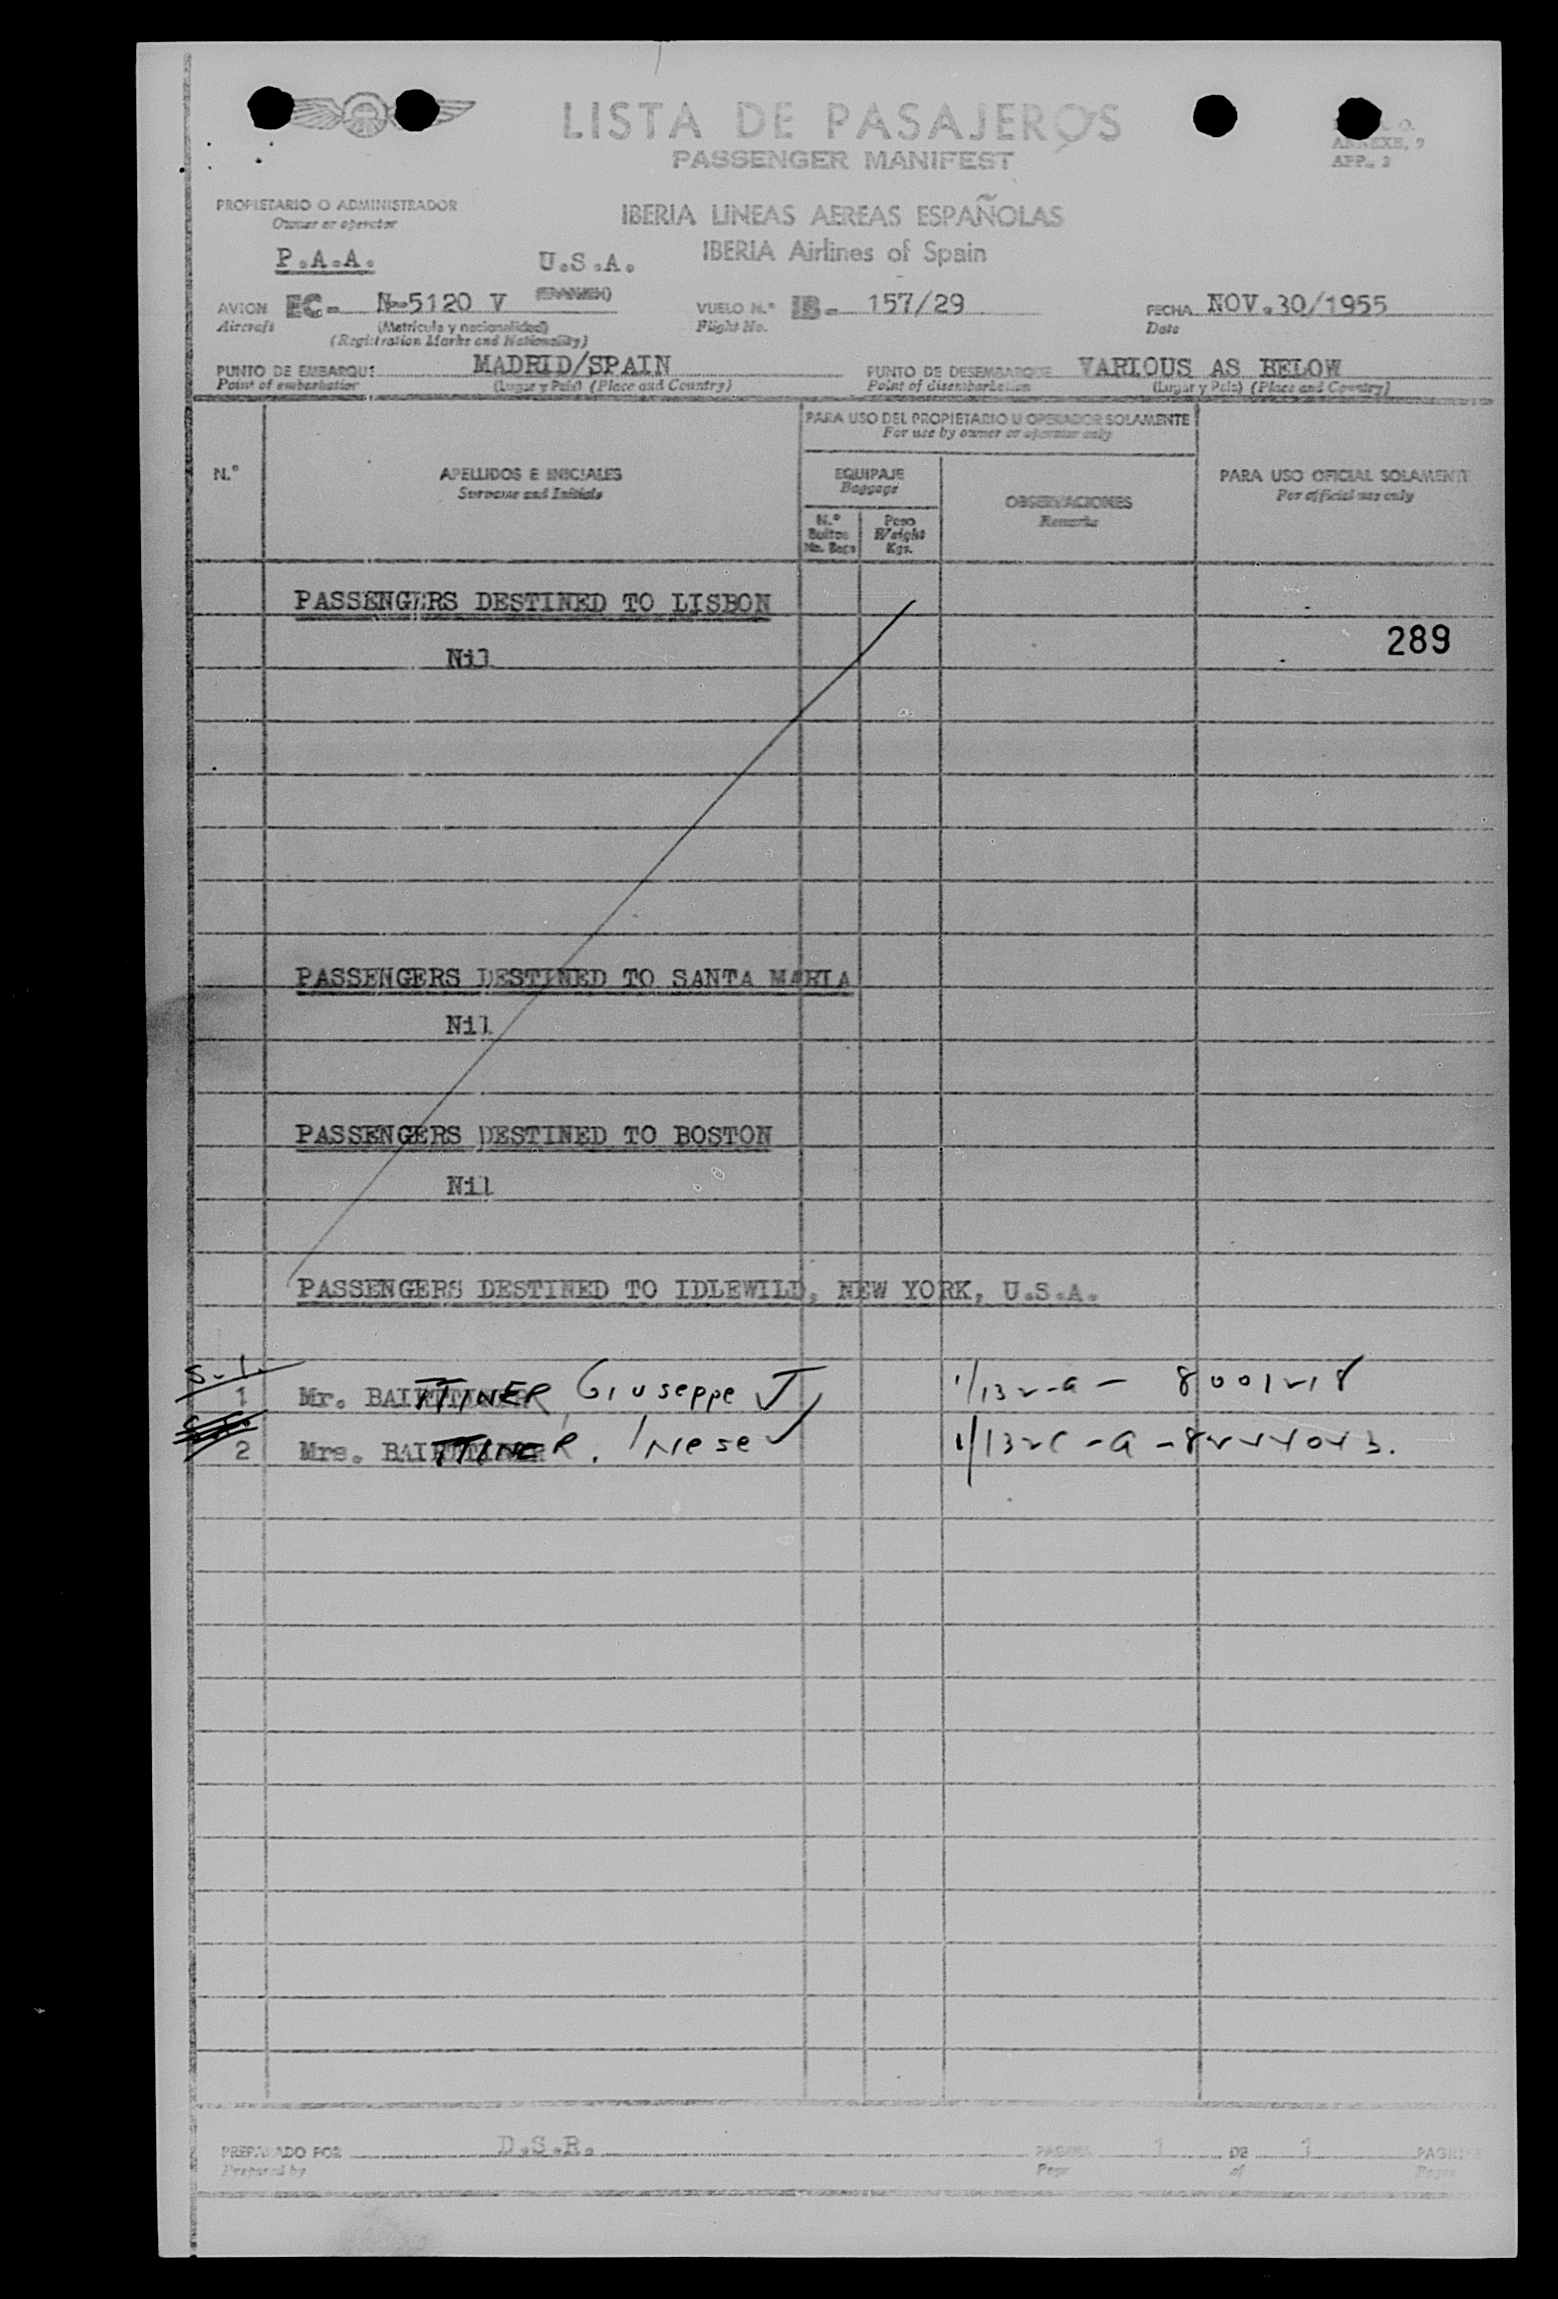 LISTA DE PASAJEROS
PASSENGER MANIFEST
ANNEXE, 9
APP.. 2
PROPIETARIO O ADMINISTRADOR
Owner or operator
IBERIA LINEAS AEREAS ESPAÑOLAS
IBERIA Airlines of Spain
P.A.A. U.S.A.
AVION EC- N-5120 V VUELO N.º IB- 157/29 FECHA NOV.30/1955
Aircraft (Matrícula y nacionalidad) Flight No. Date
(Registration Marks and Nationality)
PUNTO DE EMBARQUE MADRID/SPAIN PUNTO DE DESEMBARQUE VARIOUS AS BELOW
Point of embarkation (Lugar y País) (Place and Country) Point of disembarkation (Lugar y País) (Place and Country)
PARA USO DEL PROPIETARIO U OPERADOR SOLAMENTE
For use by owner or operator only
N.º APELLIDOS E INICIALES EQUIPAJE PARA USO OFICIAL SOLAMENTE
Surname and Initials Baggage For official use only
OBSERVACIONES
Remarks
N.º Bultos Peso
No. Bags Weight
Kgs.
PASSENGERS DESTINED TO LISBON
289
Nil
PASSENGERS DESTINED TO SANTA MARIA
Nil
PASSENGERS DESTINED TO BOSTON
Nil
PASSENGERS DESTINED TO IDLEWILD, NEW YORK, U.S.A.
1 Mr. BAITTINER, Giuseppe
2 Mrs. BAITTINER. Inese
PREPARADO POR D.S.R. PAGINA 1 DE 1 PAGINAS
Prepared by Page of Pages